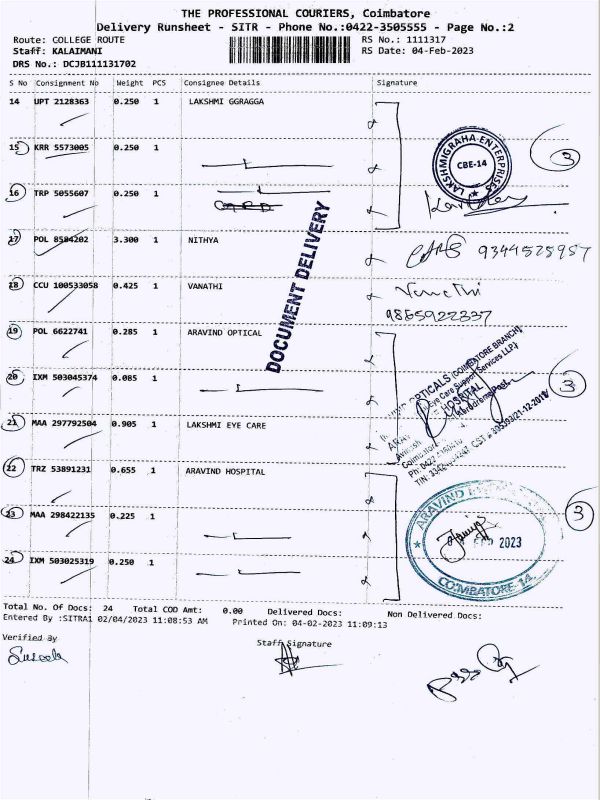 THE PROFESSIONAL COURIERS, Coimbatore
Delivery Runsheet - SITR - Phone No.:0422-3505555 - Page No.:2
Route: COLLEGE ROUTE
RS No.: 1111317
Staff: KALAIMANI
RS Date: 04-Feb-2023
DRS No.: DCJB111131702
S No Consignment No Weight PCS Consignee Details Signature
14 UPT 2128363 0.250 1 LAKSHMI GGRAGGA
15 KRR 5573005 0.250 1
3
LAKSHMIGRAHA ENTERPRISES
CBE-14
16 TRP 5055607 0.250 1
DOCUMENT DELIVERY
17 POL 8504202 3.300 1 NITHYA
9344525957
18 CCU 100533058 0.425 1 VANATHI Vanathi
9865922337
19 POL 6622741 0.285 1 ARAVIND OPTICAL
20 IXM 503045374 0.085 1
3
OPTICALS (COIMBATORE BRANCH)
Eye Care Support Services LLP)
HOSPITAL
21 MAA 297792504 0.905 1 LAKSHMI EYE CARE
22 TRZ 53891231 0.655 1 ARAVIND HOSPITAL
23 MAA 298422135 0.225 1
3
ARAVIND
2023
COIMBATORE-14.
24 IXM 503025319 0.250 1
Total No. Of Docs: 24 Total COD Amt: 0.00 Delivered Docs: Non Delivered Docs:
Entered By :SITRA1 02/04/2023 11:08:53 AM Printed On: 04-02-2023 11:09:13
Verified By
Staff Signature